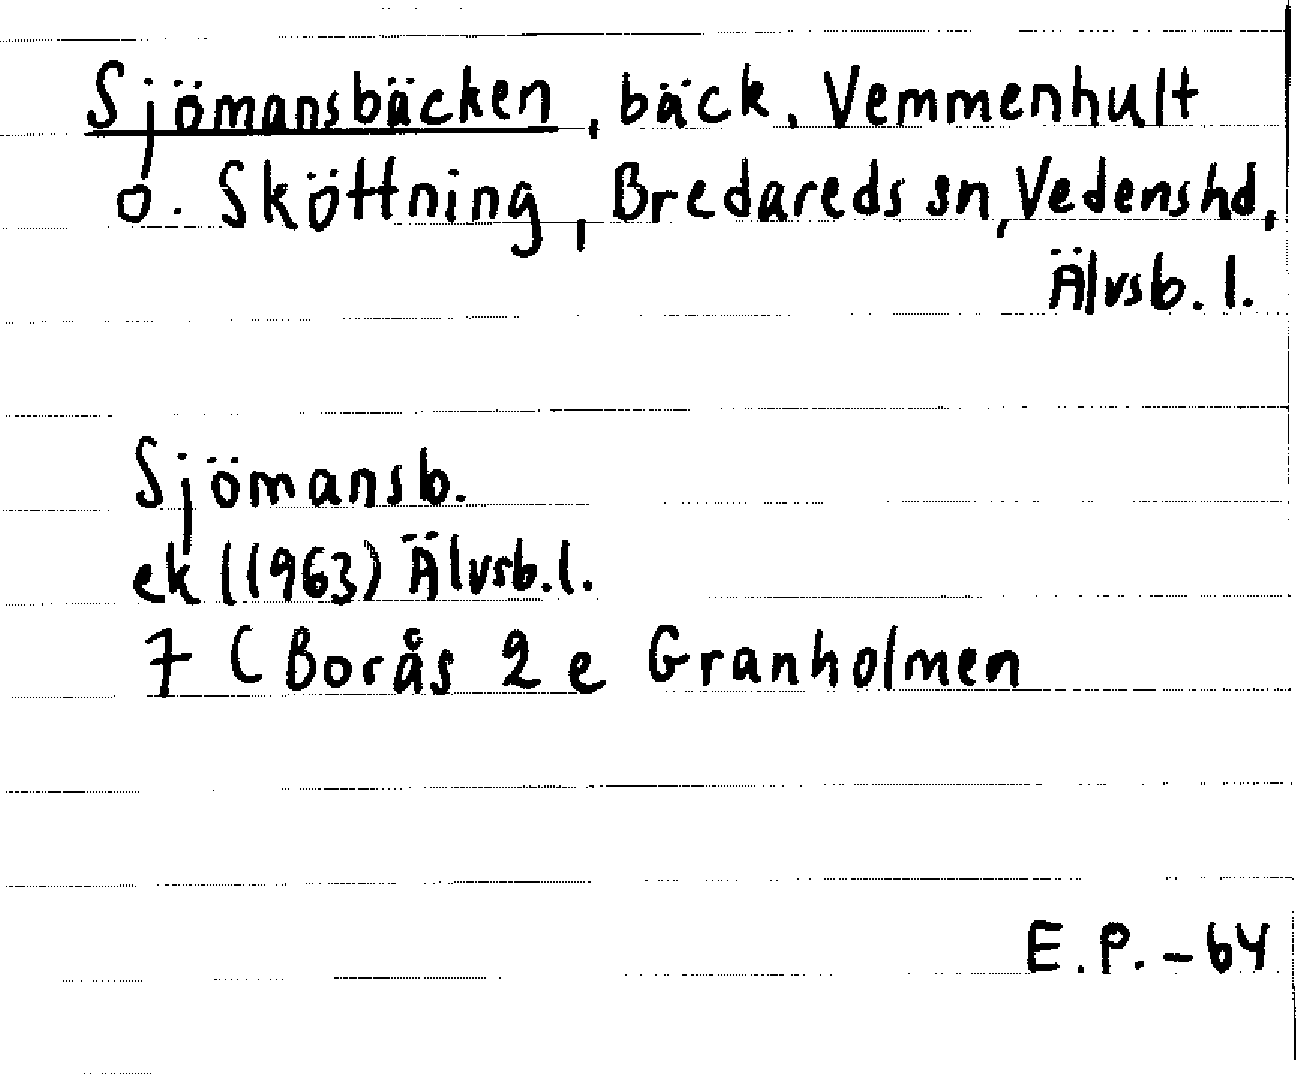 Sjömansbäcken, bäck, Vemmenhult
o. Sköttning, Bredareds sn, Vedens hd,
Älvsb. l.
Sjömansb.
ek (1963) Älvsb. l.
7 C Borås 2 e Granholmen
E.P. - 64